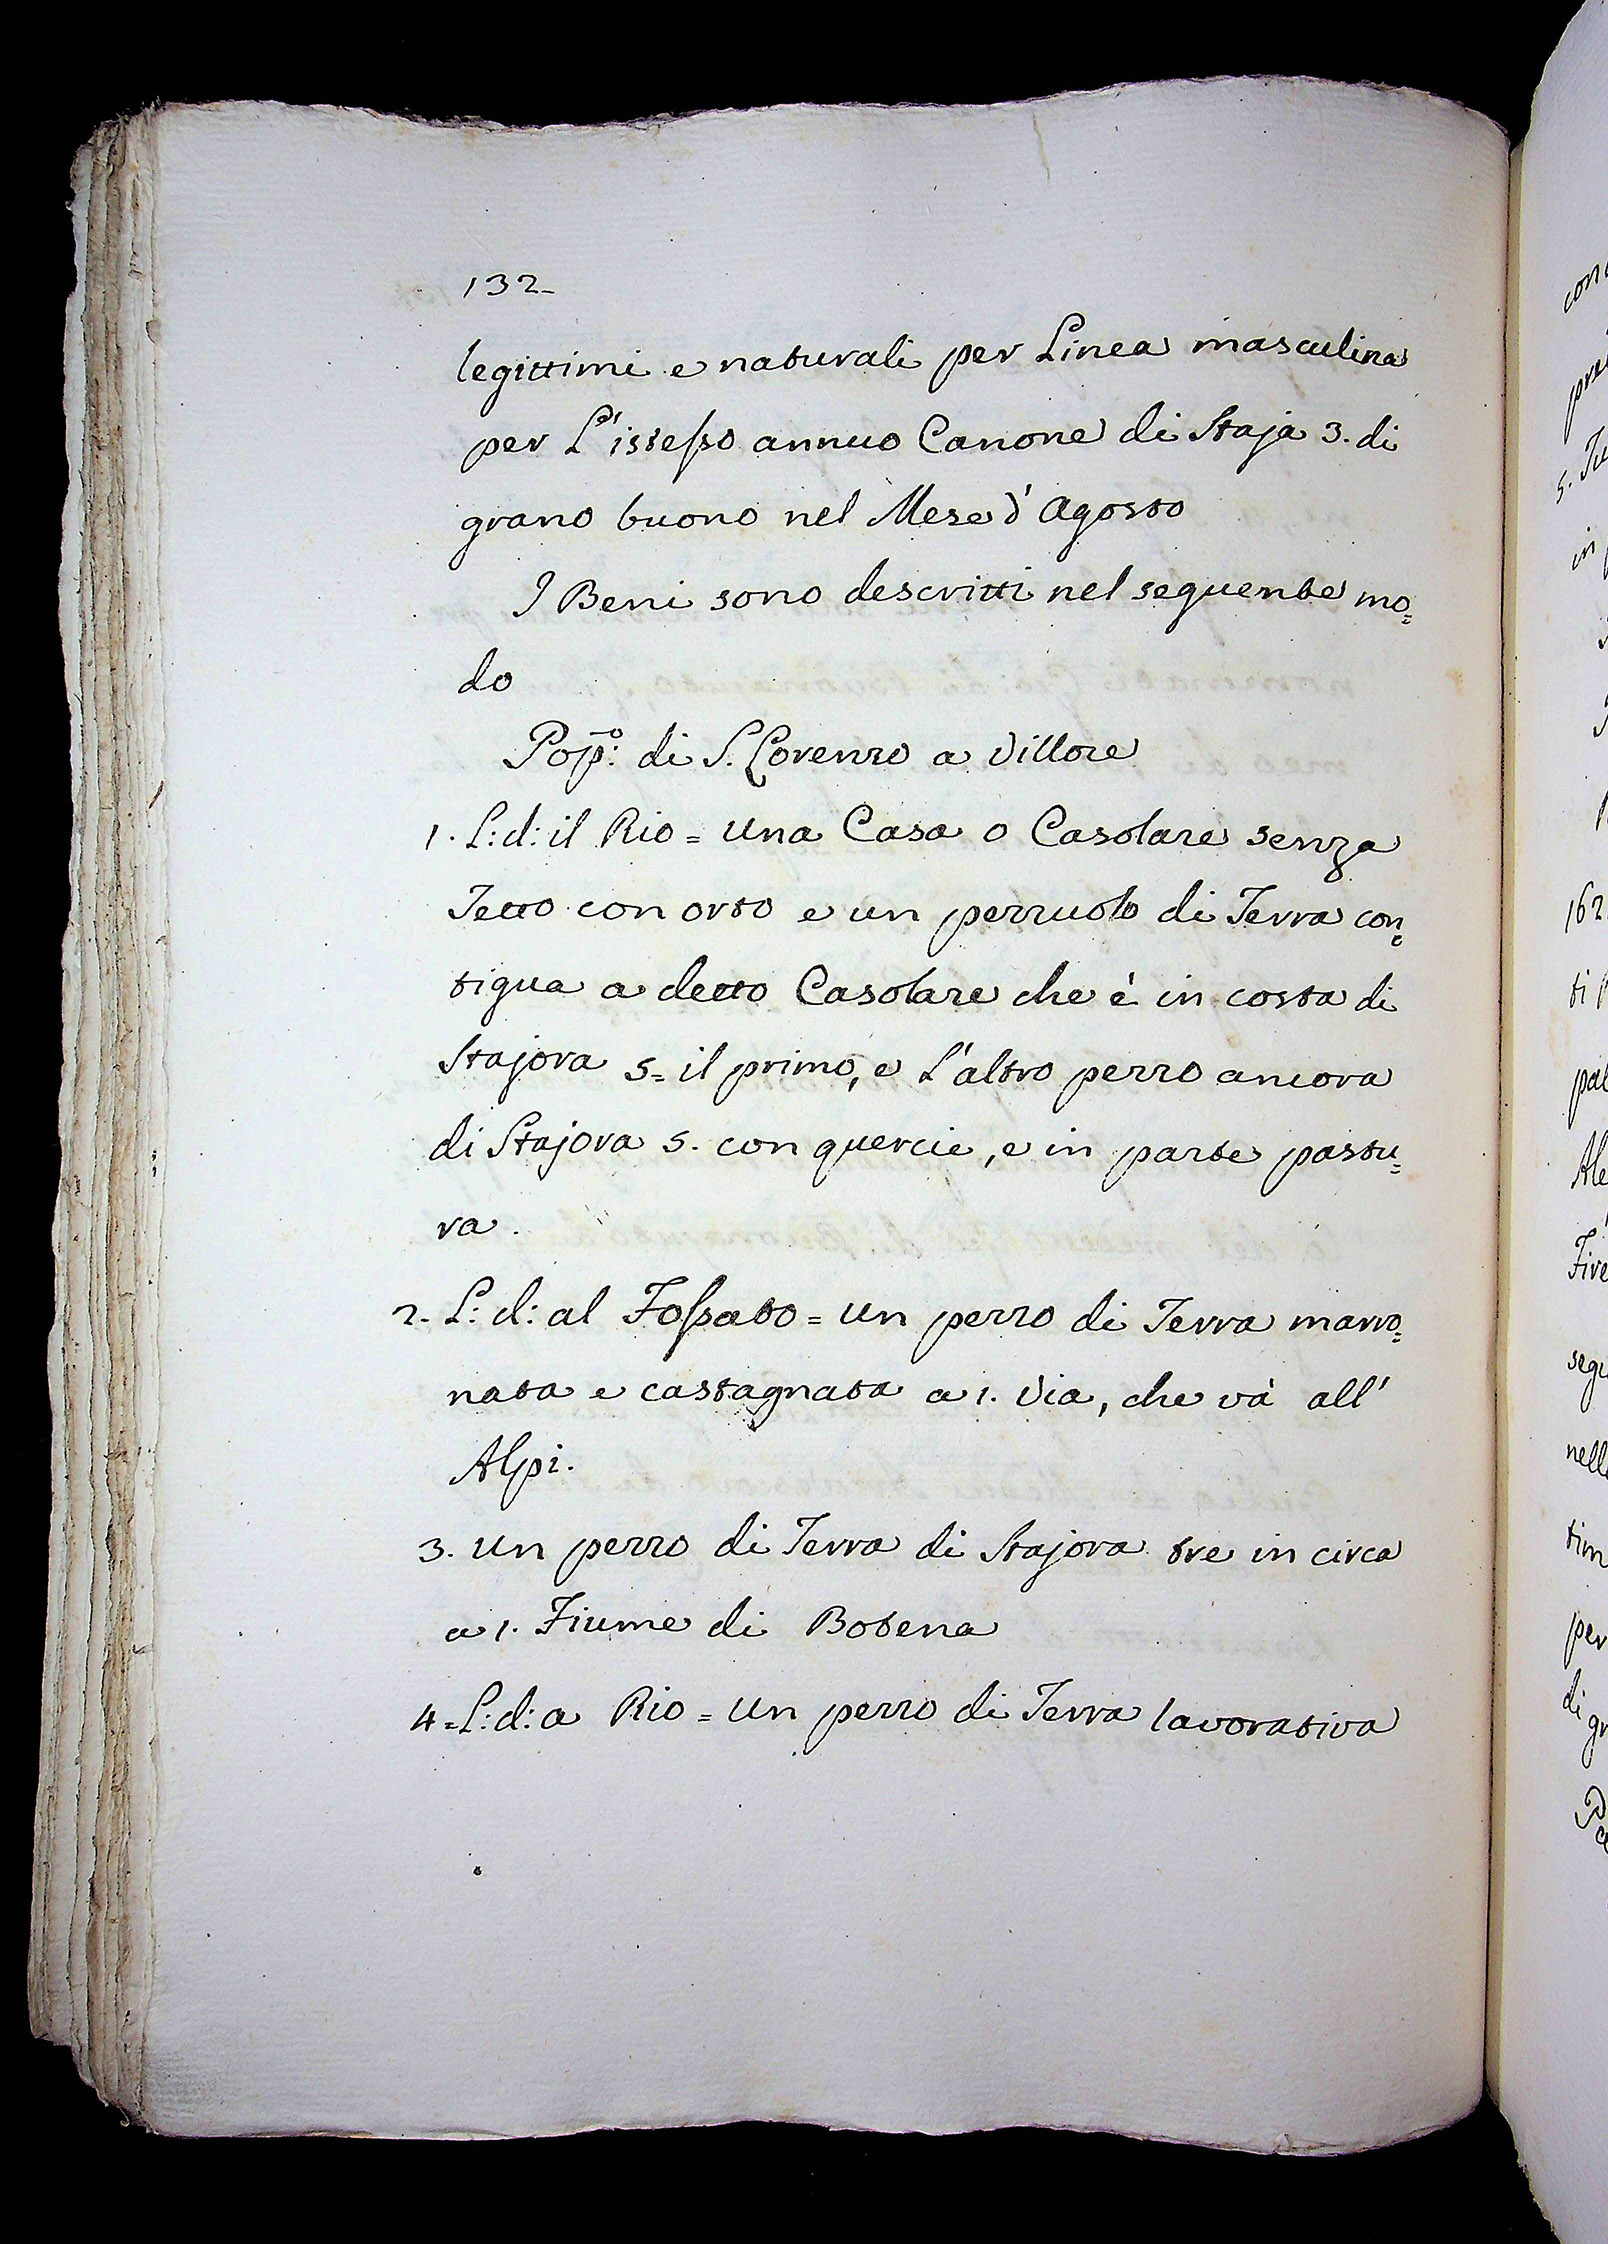 132-
legittimi e naturali per Linea masculina
per L'istesso annuo Canone di Staja 3. di
grano buono nel Mese d'Agosto
I Beni sono descritti nel seguente mo=
do
Pop:o di S. Lorenzo a Villore
1. L: d: il Rio = una Casa o Casolare senza
Tetto con orto e un pezzuolo di Terra con=
tigua a detto Casolare che è in costa di
Stajora 5= il primo, e L'altro pezzo ancora
di Stajora 5. con quercie, e in parte pastu=
ra.
2. L: d: al Fossato = un pezzo di Terra marro=
nata e castagnata a 1. Via, che và all'
Alpi.
3. un pezzo di Terra di Stajora tre in circa
a 1. Fiume di Botena
4= L: d: a Rio = un pezzo di Terra lavorativa